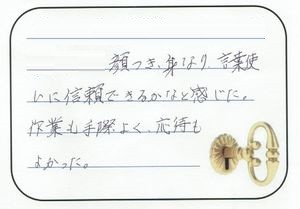 顔つき、身なり、言葉使
いに信頼できるかなと感じた。
作業も手際よく、応待も
よかった。